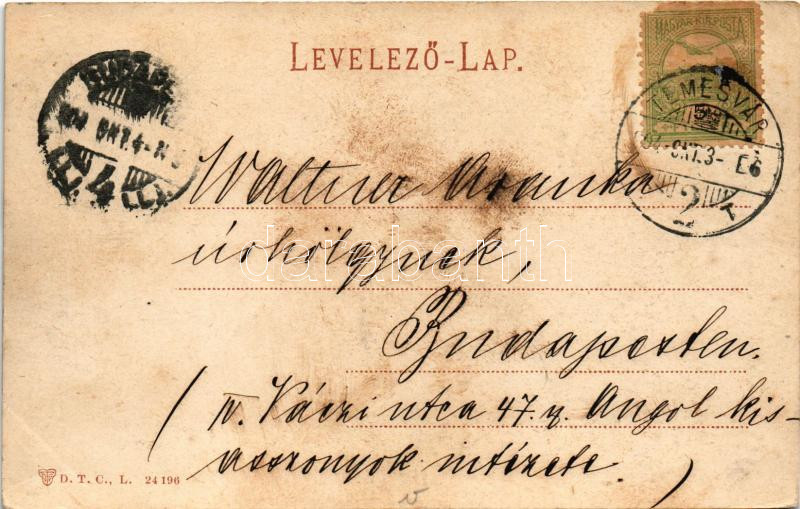 LEVELEZŐ-LAP.
MAGYAR KIR. POSTA
TEMESVÁR
OKT. 3-
2
Waltner Aranka
úrhölgynek,
Budapesten.
(IV. Váczi utca 47. sz. Angol kis-
asszonyok intézete.)
D. T. C., L. 24196
darabanth